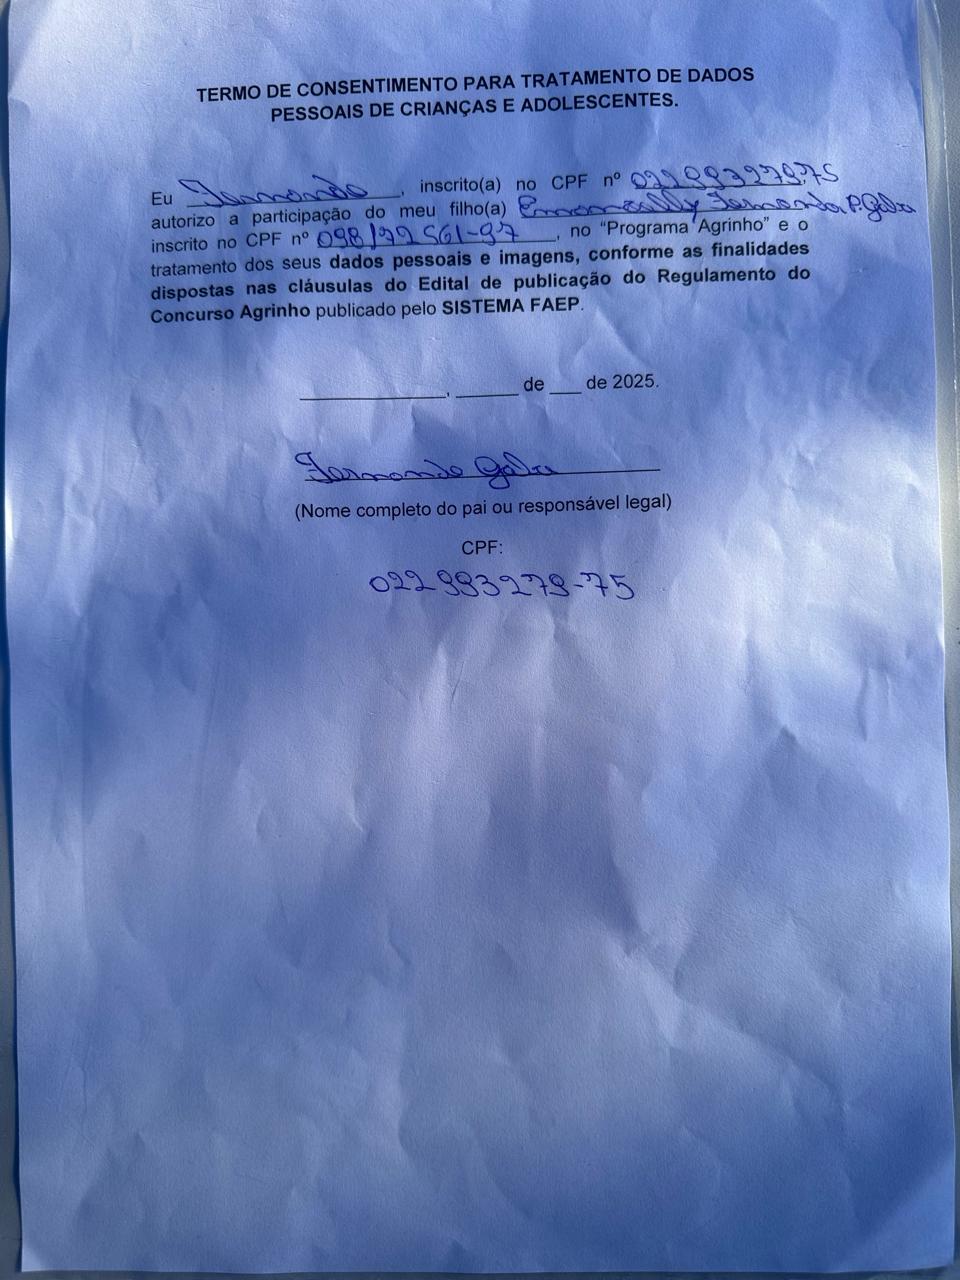 TERMO DE CONSENTIMENTO PARA TRATAMENTO DE DADOS
PESSOAIS DE CRIANÇAS E ADOLESCENTES.
Eu Fernando, inscrito(a) no CPF nº 022993279-75
autorizo a participação do meu filho(a) Emanoelly Fernanda P. Gala
inscrito no CPF nº 098172561-97, no “Programa Agrinho” e o
tratamento dos seus dados pessoais e imagens, conforme as finalidades
dispostas nas cláusulas do Edital de publicação do Regulamento do
Concurso Agrinho publicado pelo SISTEMA FAEP.
____________, _____ de ___ de 2025.
Fernando Gala
(Nome completo do pai ou responsável legal)
CPF:
022993279-75